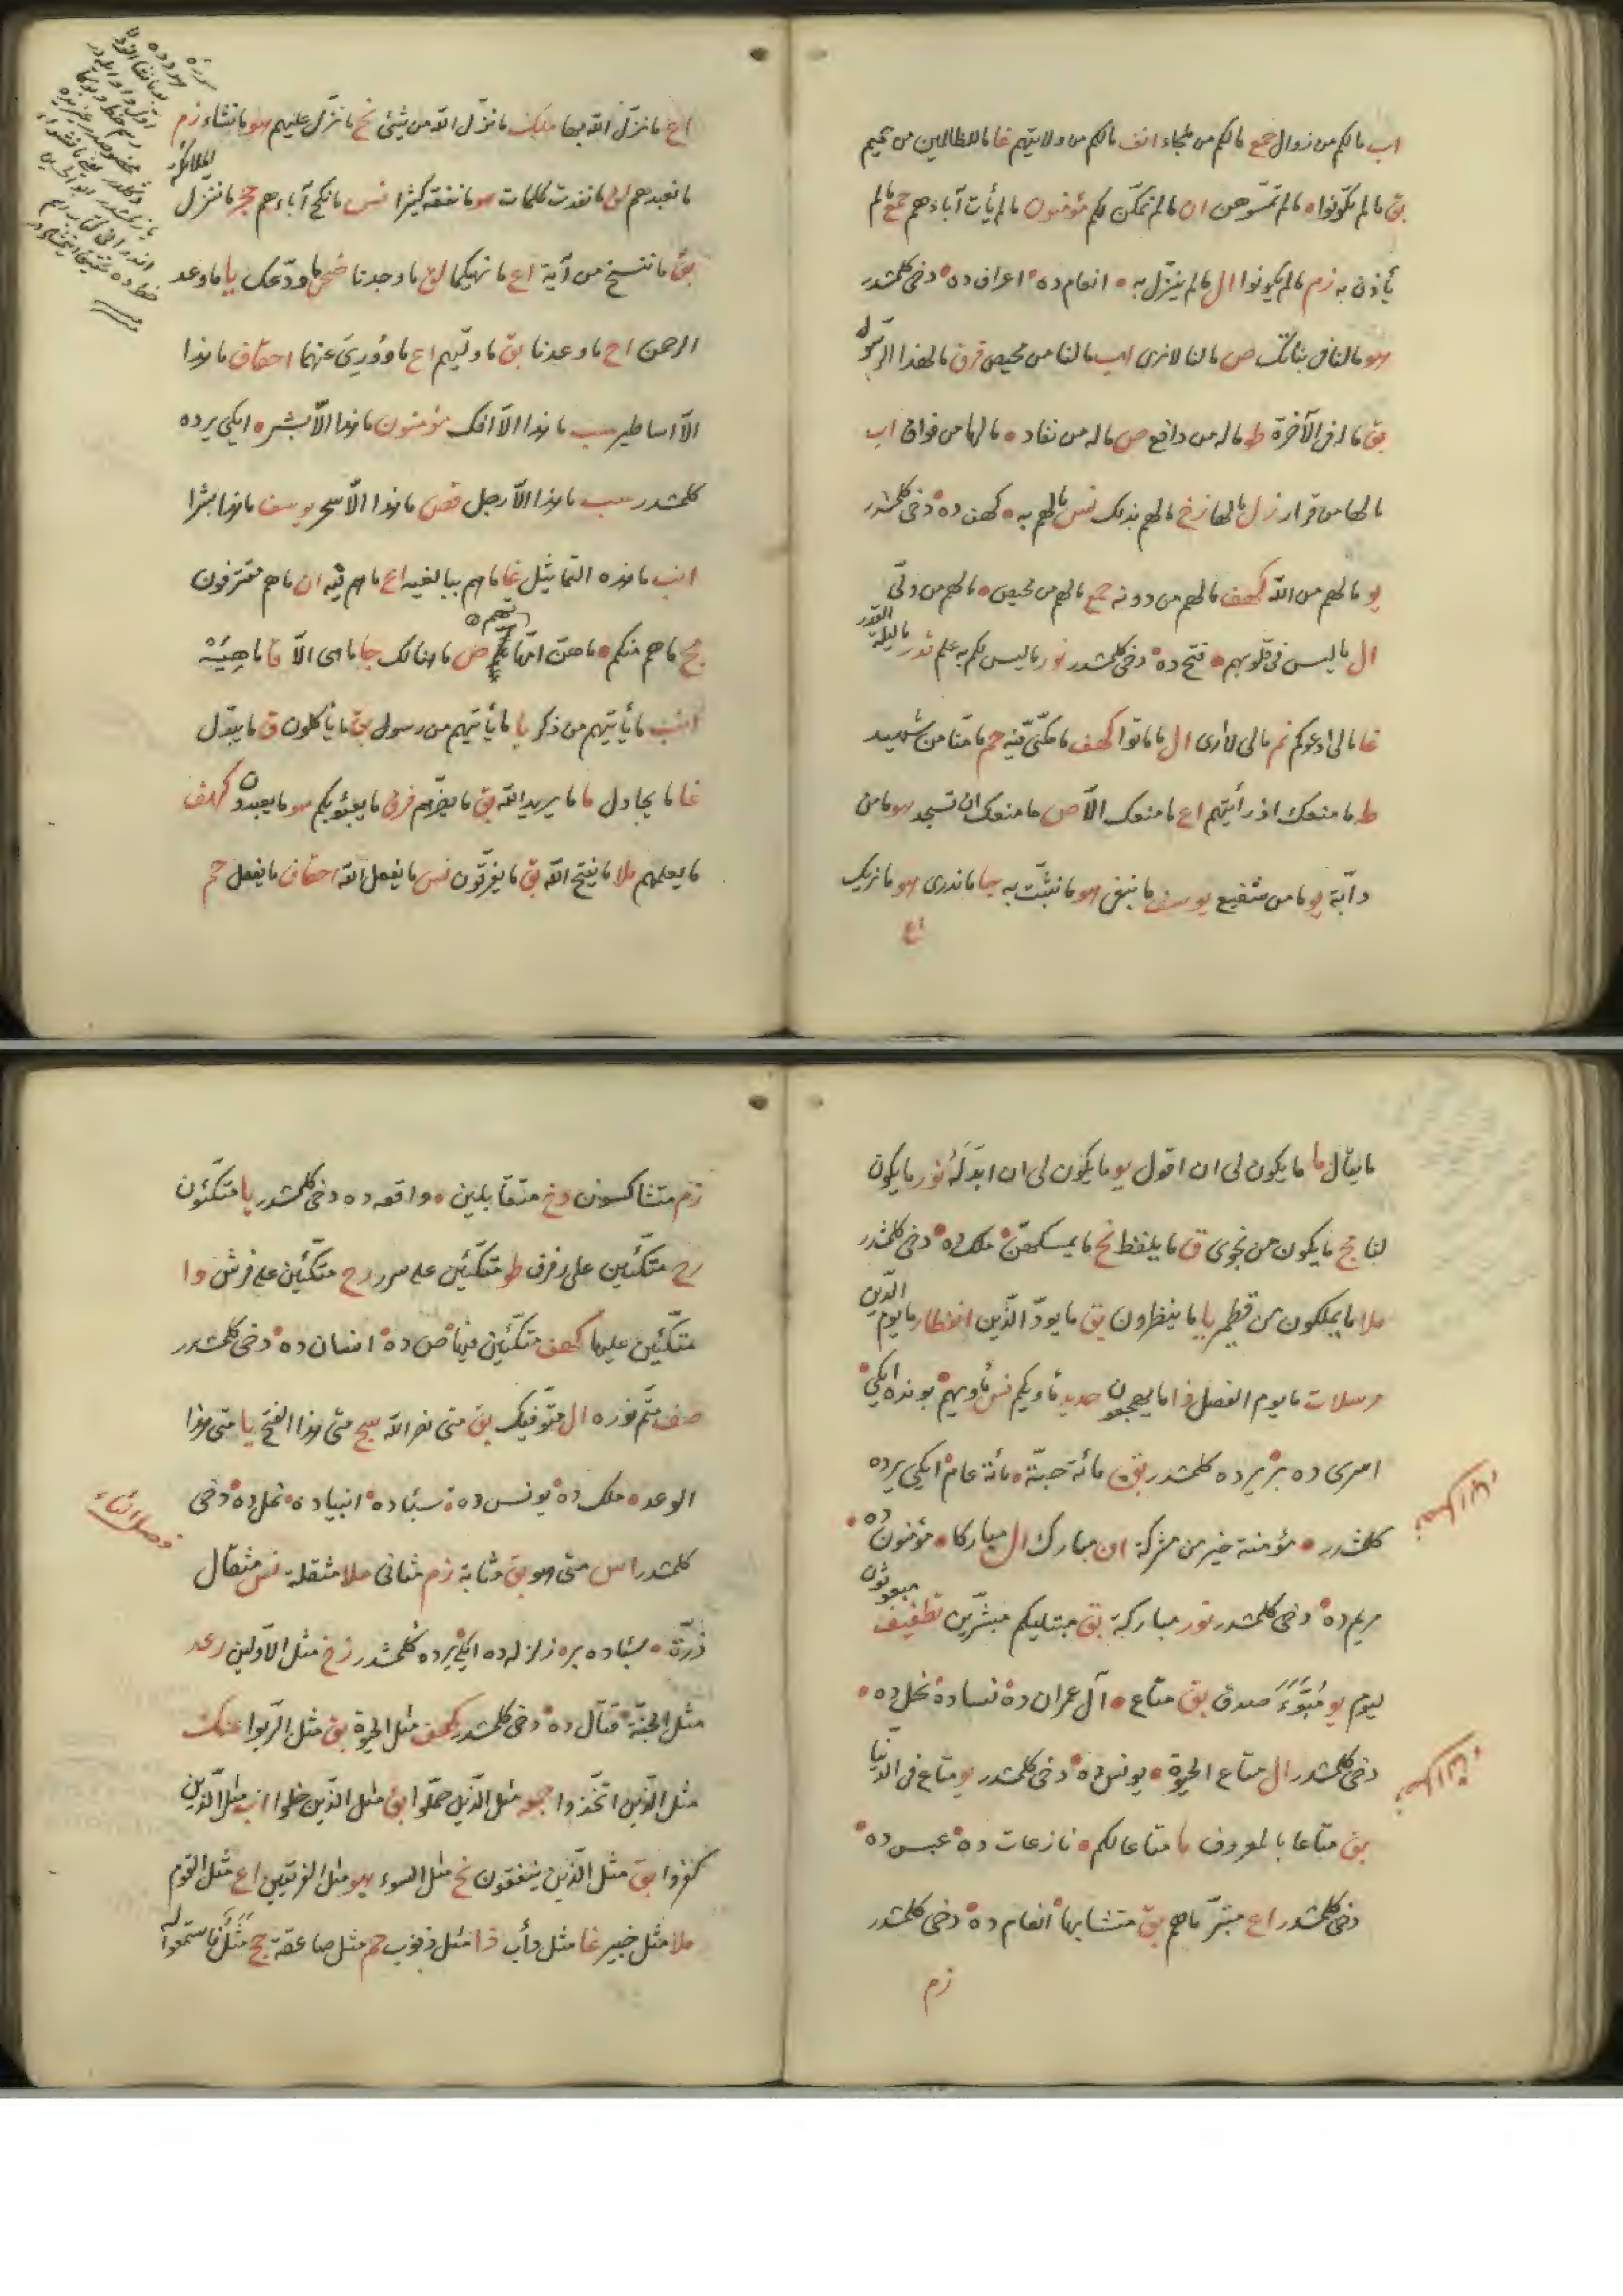 اب مالكم من زوال جمع مالكم من ملجاء انف مالكم من ولايتهم غا ماللظالمين من حميم
بق مالم تكونوا ه مالم تمسوهن ان مالم نمكن لكم مؤمنون مالم يأت آباءهم جمع مالم
يأذن به زم مالم يكونوا ال مالم ينزل به ه انعام ده اعراف ده دخى كلمشدر
هو مالنا فى بناتك ص مالنا لا نرى اب مالنا من محيص فرق مالهذا الرسول
بق ماله فى الآخرة ط ماله من دافع ص ماله من نفاد ه مالها من فواق اب
مالها من قرار زل مالها زخ مالهم بذلك نس مالهم به ه كهف ده دخى كلمشدر
يو مالهم من الله كهف مالهم من دونه جمع مالهم من محيص ه مالهم من ولى
ال ماليس فى قلوبهم ه فتح ده دخى كلمشدر نور ماليس لكم به علم قدر ماليلة القدر
غا مالى ادعوكم نم مالى لا ارى ال ماماتوا كهف مامكنى فيه حم مامنا من شهيد
ط مامنعك اذ رأيتهم اع مامنعك الا ص مامنعك ان تسجد هو مامن
دابة يو مامن شفيع يوسف مانبغى هو مانثبت به جا ماندرى هو مانريك
اع
اع مانزل الله بها ملك مانزل الله من شئ نح مانزل عليهم هو مانشاء زم
مانعبدهم لق مانفدت كلمات هو مانفقه كثيرا نس مانكح آباءهم حجر ماننزل الملائكة
بق ماننسخ من آية اع مانهيكما لق ماوجدنا ضحى ماودعك يا ماوعد
الرحمن اح ماوعدنا بق ماوليهم اع ماوورى عنهما احقاف ماهذا
الا اساطير سب ماهذا الا افك مؤمنون ماهذا الا بشر ه ايكى يرده
كلمشدر سب ماهذا الا رجل قصص ماهذا الا سحر يوسف ماهذا بشرا
انب ماهذه التماثيل غا ماهم ببالغيه اع ماهم فيه ان ماهم مقترفون
مج ماهم منكم ه ماهن امهاتهم ص ماهنالك جا ماهى الا قا ماهيه
انب مايأتيهم من ذكر يا مايأتيهم من رسول بق مايأكلون ق مايبدل
غا مايجادل ما مايريد الله بق مايضرهم فرق مايعبؤ بكم هو مايعبدون كهف
مايعلمهم ملا مايفتح الله بق مايفرقون نس مايفعل الله احقاف مايفعل حم
مايقال ما مايكون لى ان اقول يو مايكون لى ان ابدله نور مايكون
لنا مج مايكون من نجوى ق مايلفظ نح مايمسكهن ه ملك ده دخى كلمشدر
ملا مايملكون من قطمير يا ماينظرون بق مايود الذين انفطار مايوم الدين
مرسلات مايوم الفصل ذا مايهجعون حديد مأويكم نس مأويهم بونده ايكى
اسرى ده بر يرده كلمشدر بق مائة حبة ه مائة عام ايكى يرده
كلمشدر ه مؤمنة خير من مشركة ان مبارك ال مباركا ه مؤمنون ده
مريم ده دخى كلمشدر نور مباركة بق مبتليكم مبشرين تطفيف مبعوثون
ليوم يو مبوء صدق بق متاع ه آل عمران ده نسا ده نحل ده
دخى كلمشدر ال متاع الحيوة ه يونس ده دخى كلمشدر يو متاع فى الدنيا
بق متاعا بالمعروف ما متاعا لكم ه نازعات ده عبس ده
دخى كلمشدر اع متبر ماهم بق متشابها انعام ده دخى كلمشدر
زم
زم متشاكسون دخ متقابلين ه واقعه ده دخى كلمشدر يا متكئون
رح متكئين على رفرف ط متكئين على سرر رح متكئين على فرش وا
متكئين عليها كهف متكئين فيها ص ده انسان ده دخى كلمشدر
صف متم نوره ال متوفيك بق متى نصر الله سج متى هذا الفتح يا متى هذا
الوعد ه ملك ده يونس ده سبا ده انبيا ده نمل ده دخى
فصل الثاء
كلمشدر اس متى هو بق مثابة زم مثانى ملا مثقلة نس مثقال
ذرة ه سبا ده بر ه زلزله ده ايكى يرده كلمشدر زخ مثل الاولين رعد
مثل الجنة قتال ده دخى كلمشدر كهف مثل الحيوة بق مثل الربوا عنك
مثل الذين اتخذوا جمعه مثل الذين حملوا بق مثل الذين خلوا اب مثل الذين
كفروا بق مثل الذين ينفقون نح مثل السوء هو مثل الفريقين اع مثل القوم
ملا مثل خبير غا مثل دأب ذا مثل ذنوب حم مثل صاعقة حج مثل فاستمعوا له